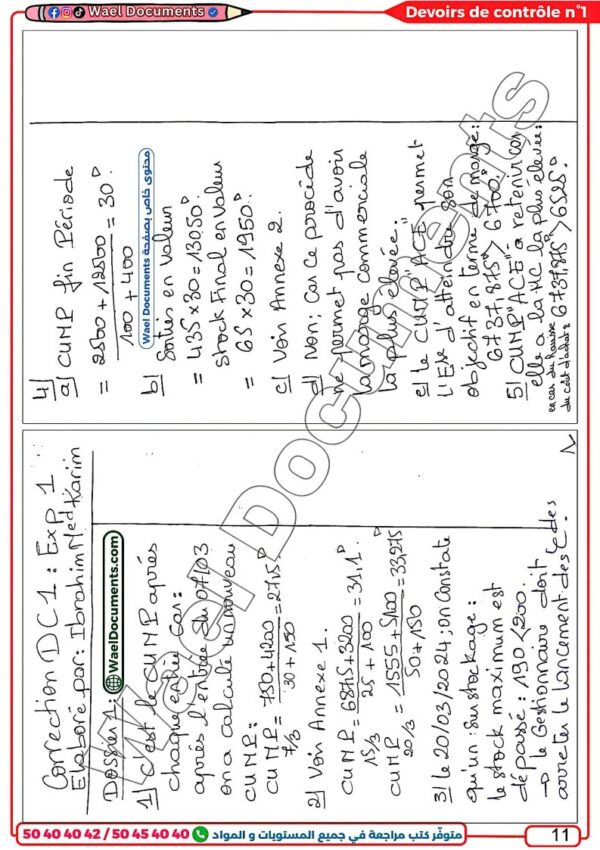 Wael Documents
Devoirs de contrôle n°1
Correction DC1 : Exp 1
Elaboré par : Ibrahim Med Karim
Dossier 1 :
WaelDocuments.com
1) C'est le CUMP après
chaque entrée Car :
après l'entrée du 07/03
on a calculé un nouveau
CUMP :
CUMP 7/3 = 730 + 4200 / 30 + 150 = 27,15 D
2) Voir Annexe 1.
CUMP 15/3 = 687,5 + 3200 / 25 + 100 = 31,1 D
CUMP 20/3 = 1555 + 5100 / 50 + 150 = 33,275 D
3) le 20/03/2024 ; on Constate
qu'un : Sur stockage :
le stock maximum est
dépassé : 190 < 200.
→ le Gestionnaire doit
arrêter le lancement des C des
4)
a) CUMP fin Période
= 2500 + 12500 / 100 + 400 = 30 D
محتوى خاص بصفحة Wael Documents
b) Sorties en Valeur
= 435 x 30 = 13050 D
Stock Final en Valeur
= 65 x 30 = 1950 D
c) Voir Annexe 2.
d) Non ; Car ce procédé
ne permet pas d'avoir
la marge commerciale
la plus élevée.
e) le CUMP "ACE" permet
l'Ese d'atteindre son
objectif en terme de marge :
6737,875 D > 6700 D
5) CUMP "ACE" à retenir car
elle a la MC la plus élevée :
en cas du hausse
du coût d'achat :
6737,875 D > 6525 D
Wael Documents
50 40 40 42 / 50 45 40 40
متوفّر كتب مراجعة في جميع المستويات و المواد
11